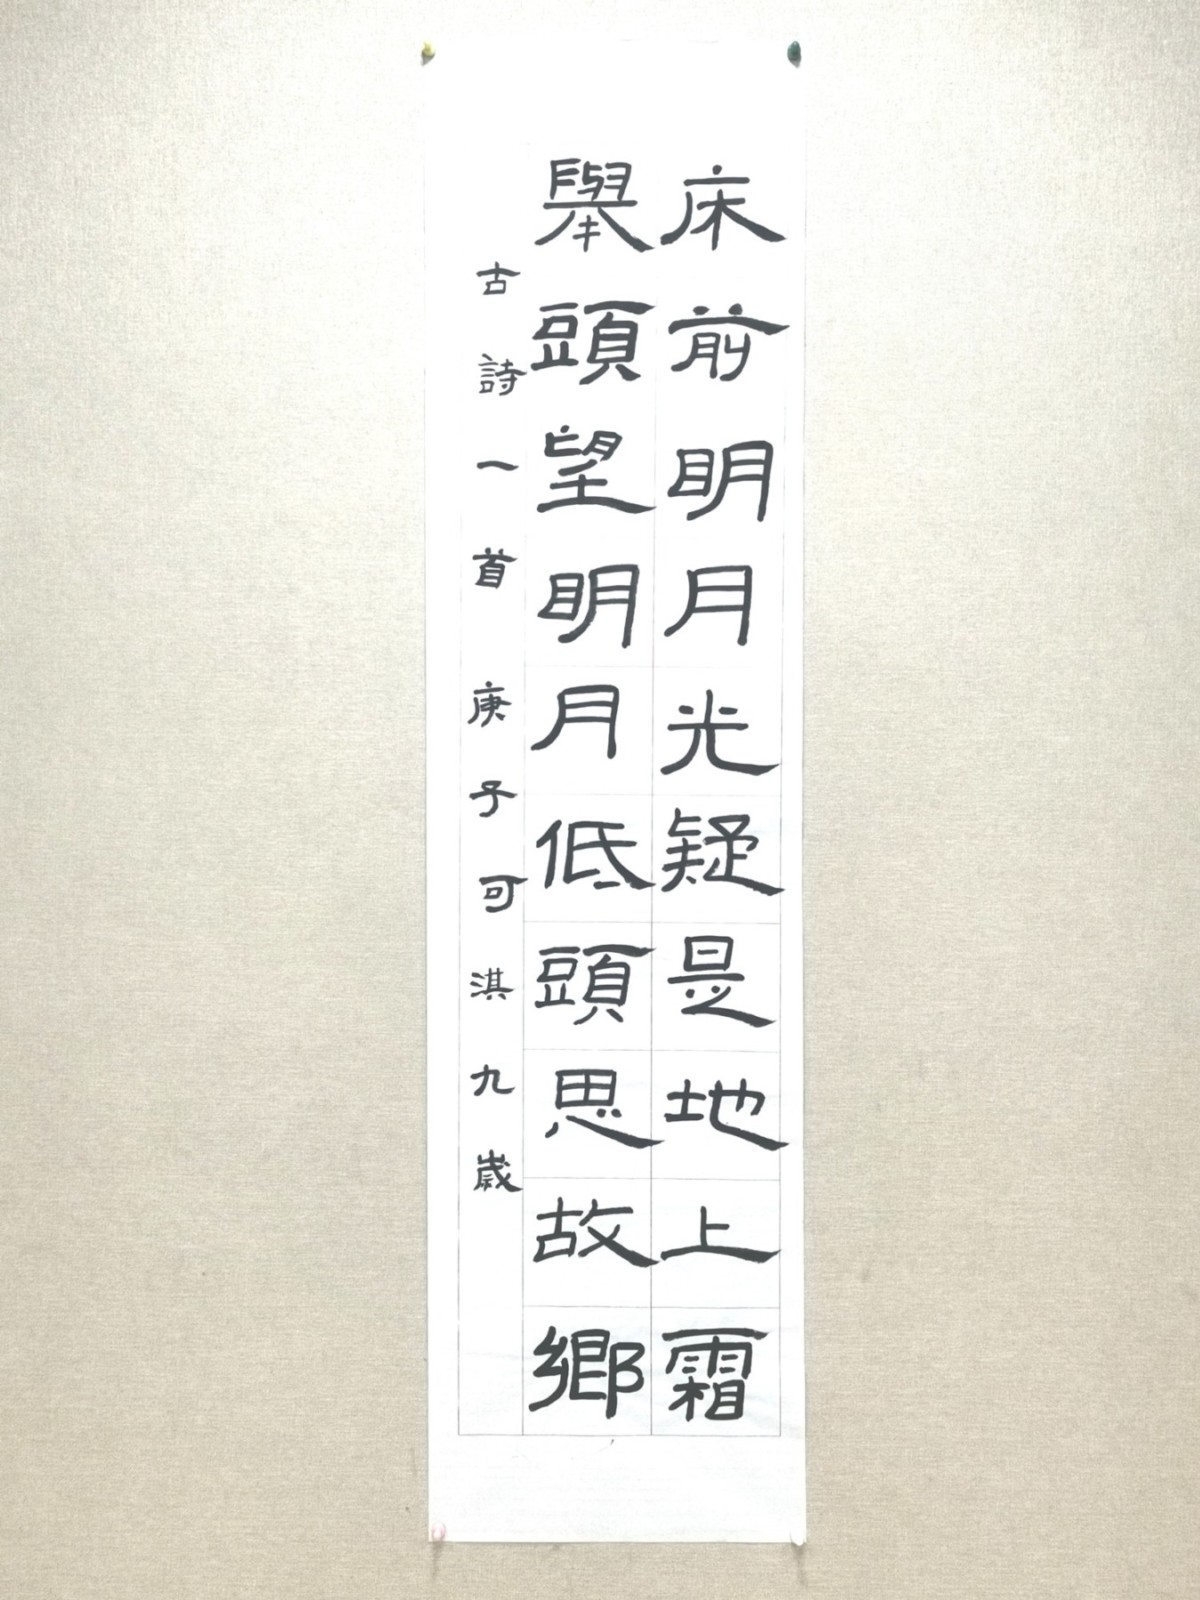 床前明月光疑是地上霜
舉頭望明月低頭思故鄉
古詩一首 庚子可淇九歲